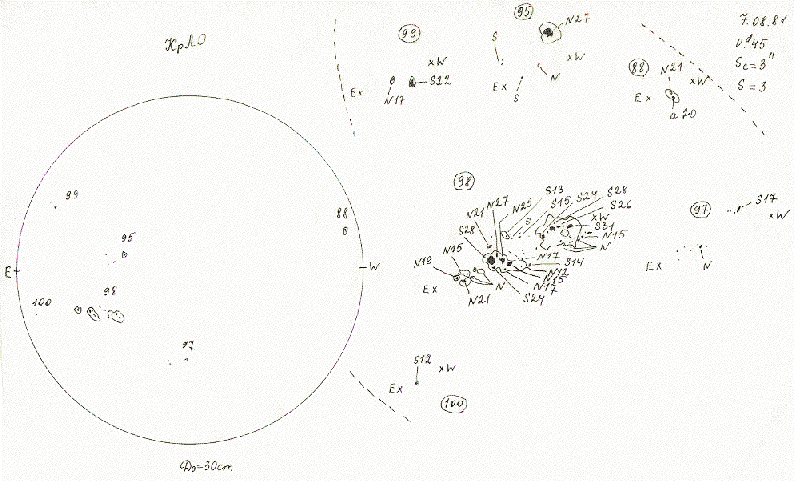 КрАО
7.08.81
S = 3
99
xW
Ex
S12
N17
95
N27
S
xW
Ex
N
S
88
N21
xW
Ex
99
88
95
E
W
98
100
97
98
S13
S24
S28
N27
N25
S15
S
S26
N21
xW
S28
S31
N15
N
N15
N17
S14
N18
N12
N15
Ex
N17
N21
N
S24
97
S17
xW
Ex
N
S12
xW
Ex
100